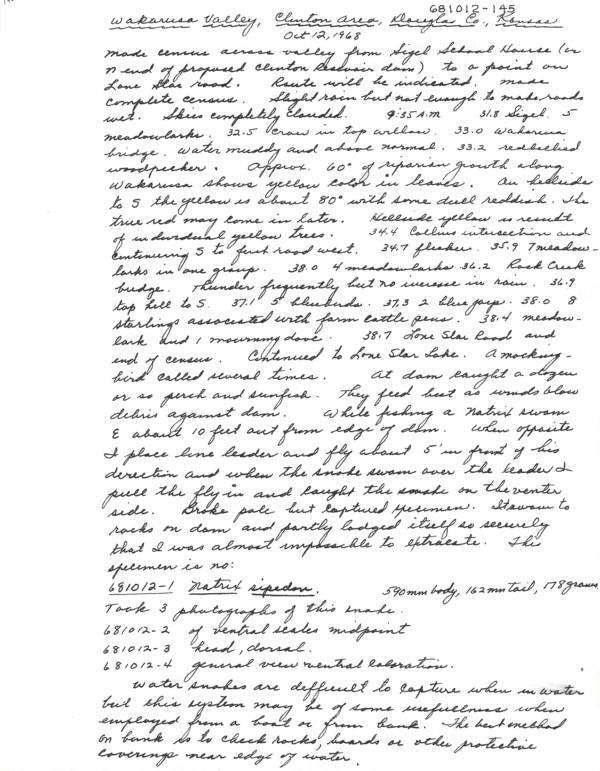 681012-145
Wakarusa Valley, Clinton Area, Douglas Co., Kansas
Oct 12, 1968
made census across valley from Sigel School House (or
N end of proposed Clinton Resevoir dam) to a point on
Lone Star road. Route will be indicated. made
complete census. Slight rain but not enough to make roads
wet. Skies completely clouded. 9:35 A.M 31.8 Sigel. 5
meadowlarks. 32.5 Crow in top willow. 33.0 Wakarusa
bridge. Water muddy and above normal. 33.2 redbellied
woodpecker. Approx. 60° of riparian growth along
Wakarusa shows yellow color in leaves. On hillside
to S the yellow is about 80° with some dull reddish. The
true red may come in later. Hillside yellow is result
of individual yellow trees. 34.4 Collins intersection and
continuing S to first road west. 34.7 flicker. 35.9 7 meadow-
larks in one group. 38.0 4 meadowlarks 36.2 Rock Creek
bridge. Thunder frequently but no increase in rain. 36.9
top hill to S. 37.1 5 bluebirds. 37.3 2 blue jays. 38.0 8
starlings associated with farm cattle pens. 38.4 meadow-
lark and 1 mourning dove. 38.7 Lone Star Road and
end of census. Continued to Lone Star Lake. A mocking-
bird called several times. At dam caught a dozen
or so perch and sunfish. They feed best as winds blow
debris against dam. While fishing a Natrix swam
E about 10 feet out from edge of dam. When opposite
I place line leader and fly about 5' in front of his
direction and when the snake swam over the leader I
pull the fly in and caught the snake on the venter
side. Broke pole but captured specimen. It swam to
rocks on dam and partly lodged itself so securely
that I was almost impossible to extracate. This
specimen is no:
681012-1 Natrix sipedon. 590mm body, 162mm tail, 178 grams
Took 3 photographs of this snake.
681012-2 of ventral scales midpoint
681012-3 head, dorsal.
681012-4 general view ventral coloration.
Water snakes are difficult to capture when in water
but this system may be of some usefullness when
employed from a boat or from bank. The best method
on bank is to check rocks, boards or other protective
coverings near edge of water.